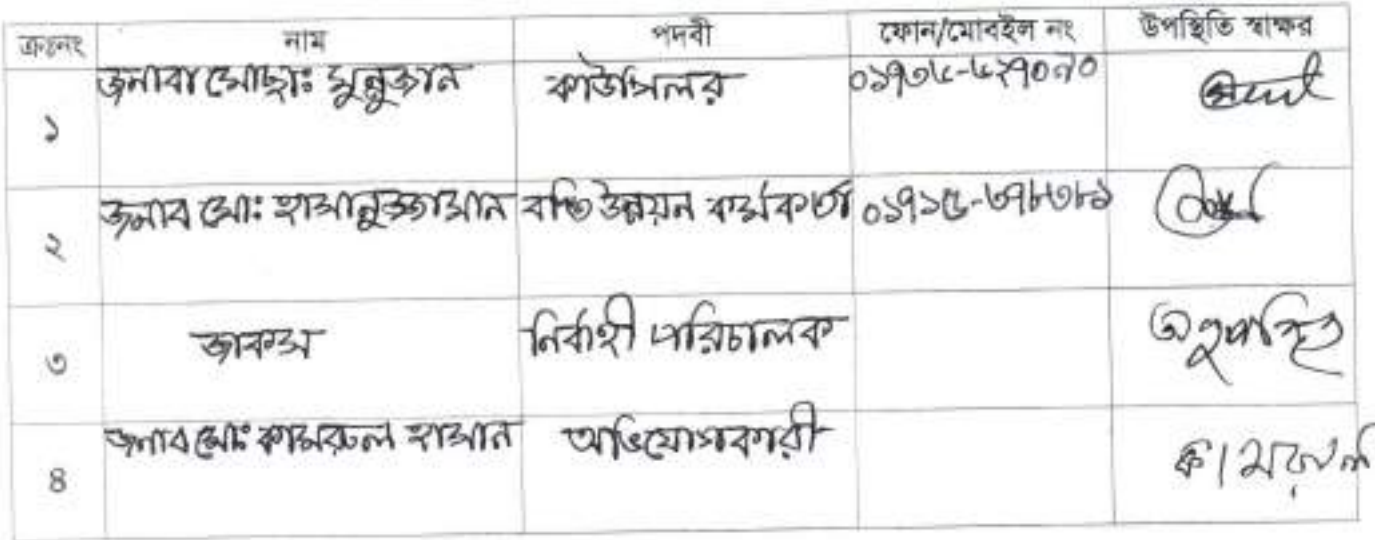 ক্রঃনং নাম পদবী ফোন/মোবাইল নং উপস্থিতি স্বাক্ষর
১ জনাবা মোছাঃ মুন্নুজান কাউন্সিলর
২ জনাব মোঃ হাসানুজ্জামান বস্তি উন্নয়ন কর্মকর্তা ০১৭১৫-৬৭৮৬৮১
৩ জাকস নির্বাহী পরিচালক অনুপস্থিত
৪ জনাব মোঃ কামরুল হাসান অভিযোগকারী কামরুল